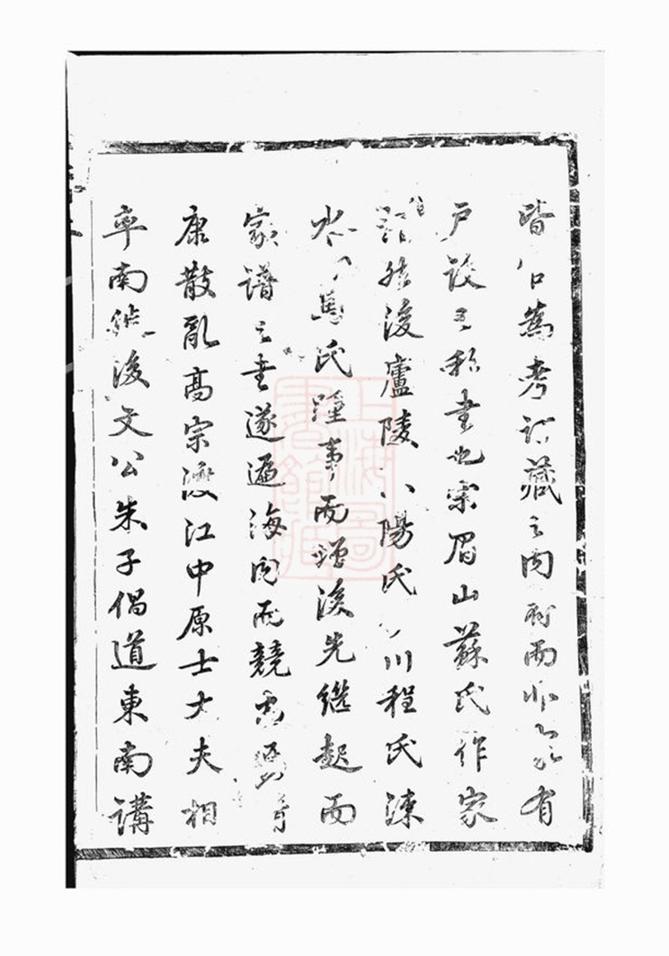 皆 為考訂藏之內府而非 有
戶設之私書也宋眉山蘇氏作家
譜然後廬陵 陽氏 川程氏涑
水 馬氏踵事而增後先繼起而
家譜之書遂遍海內而競
康散亂高宗渡江中原士大夫相
率南徙後文公朱子倡道東南講
上海圖書館藏